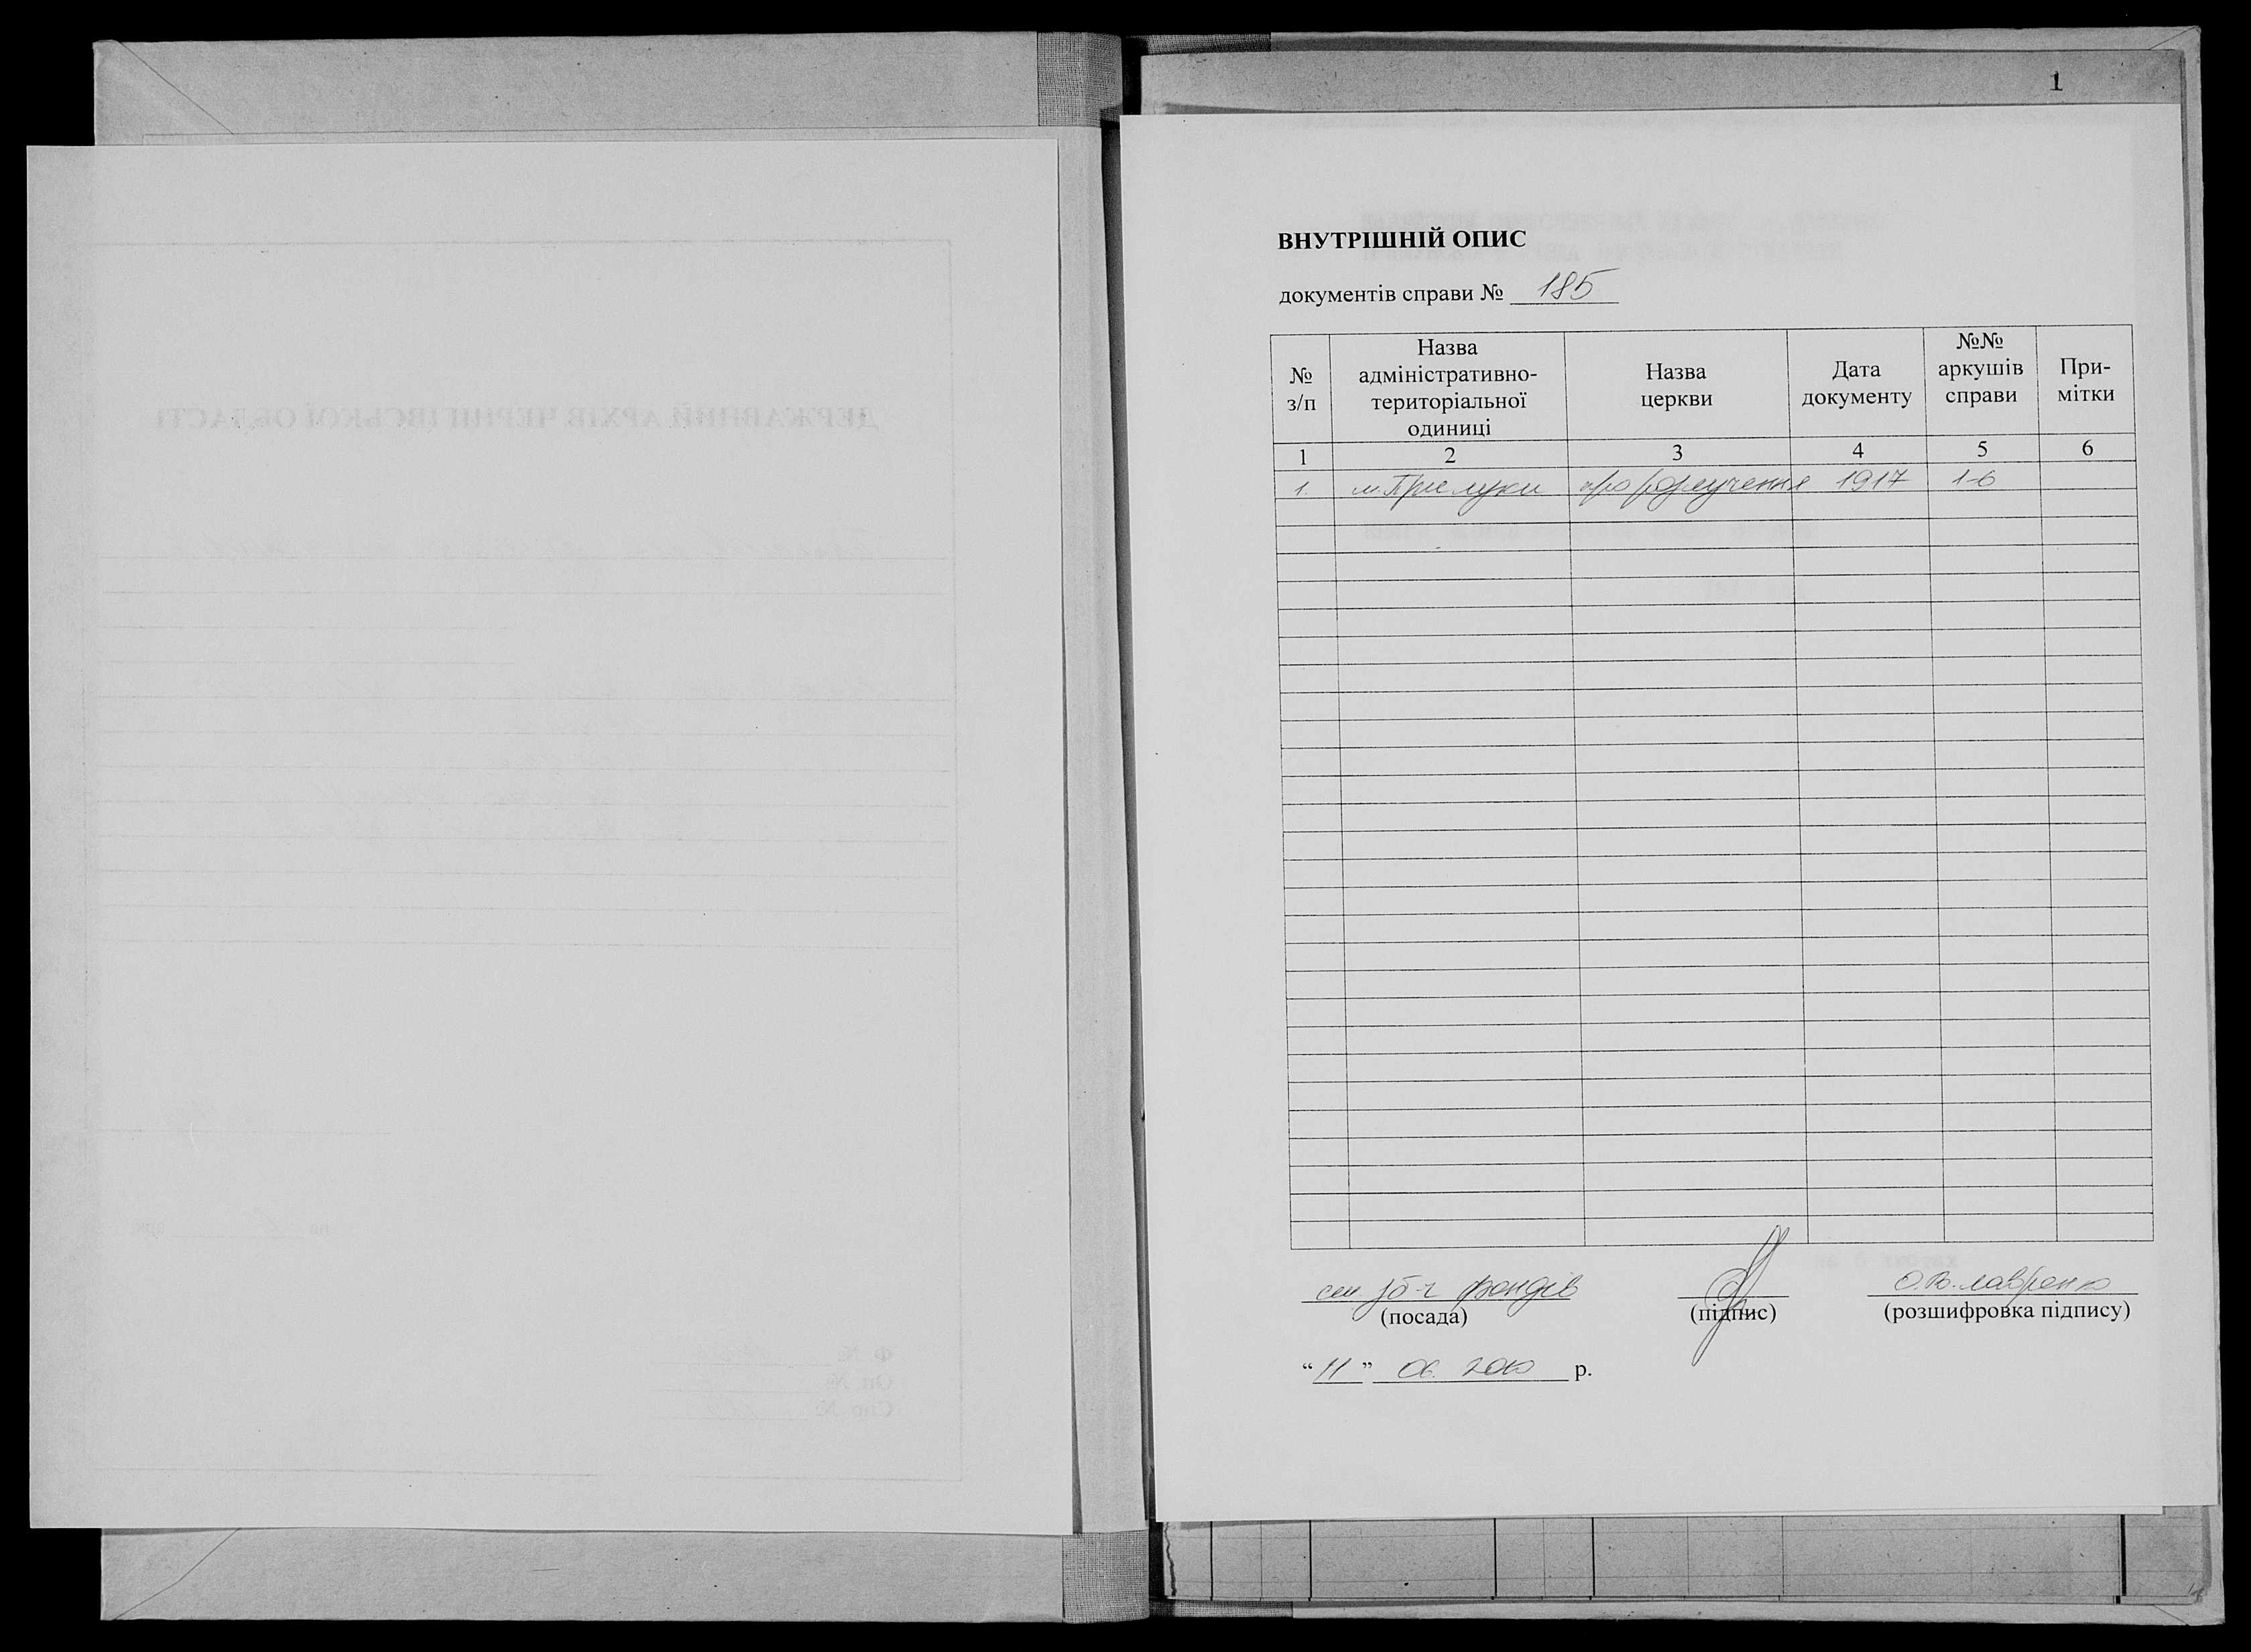 1
ВНУТРІШНІЙ ОПИС
документів справи № 185
№ з/п
Назва адміністративно-територіальної одиниці
Назва церкви
Дата документу
№№ аркушів справи
При-мітки
1 2 3 4 5 6
1. м. Прилуки про розлучення 1917 1-6
ст. зб-ч фондів О.В. Лавренко
(посада) (підпис) (розшифровка підпису)
“11” 06. 2010 р.
ДЕРЖАВНИЙ АРХІВ ЧЕРНІГІВСЬКОЇ ОБЛАСТІ
на арк.
Ф. №
Оп. №
Спр. №